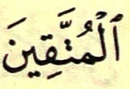 ٱلْمُتَّقِينَ